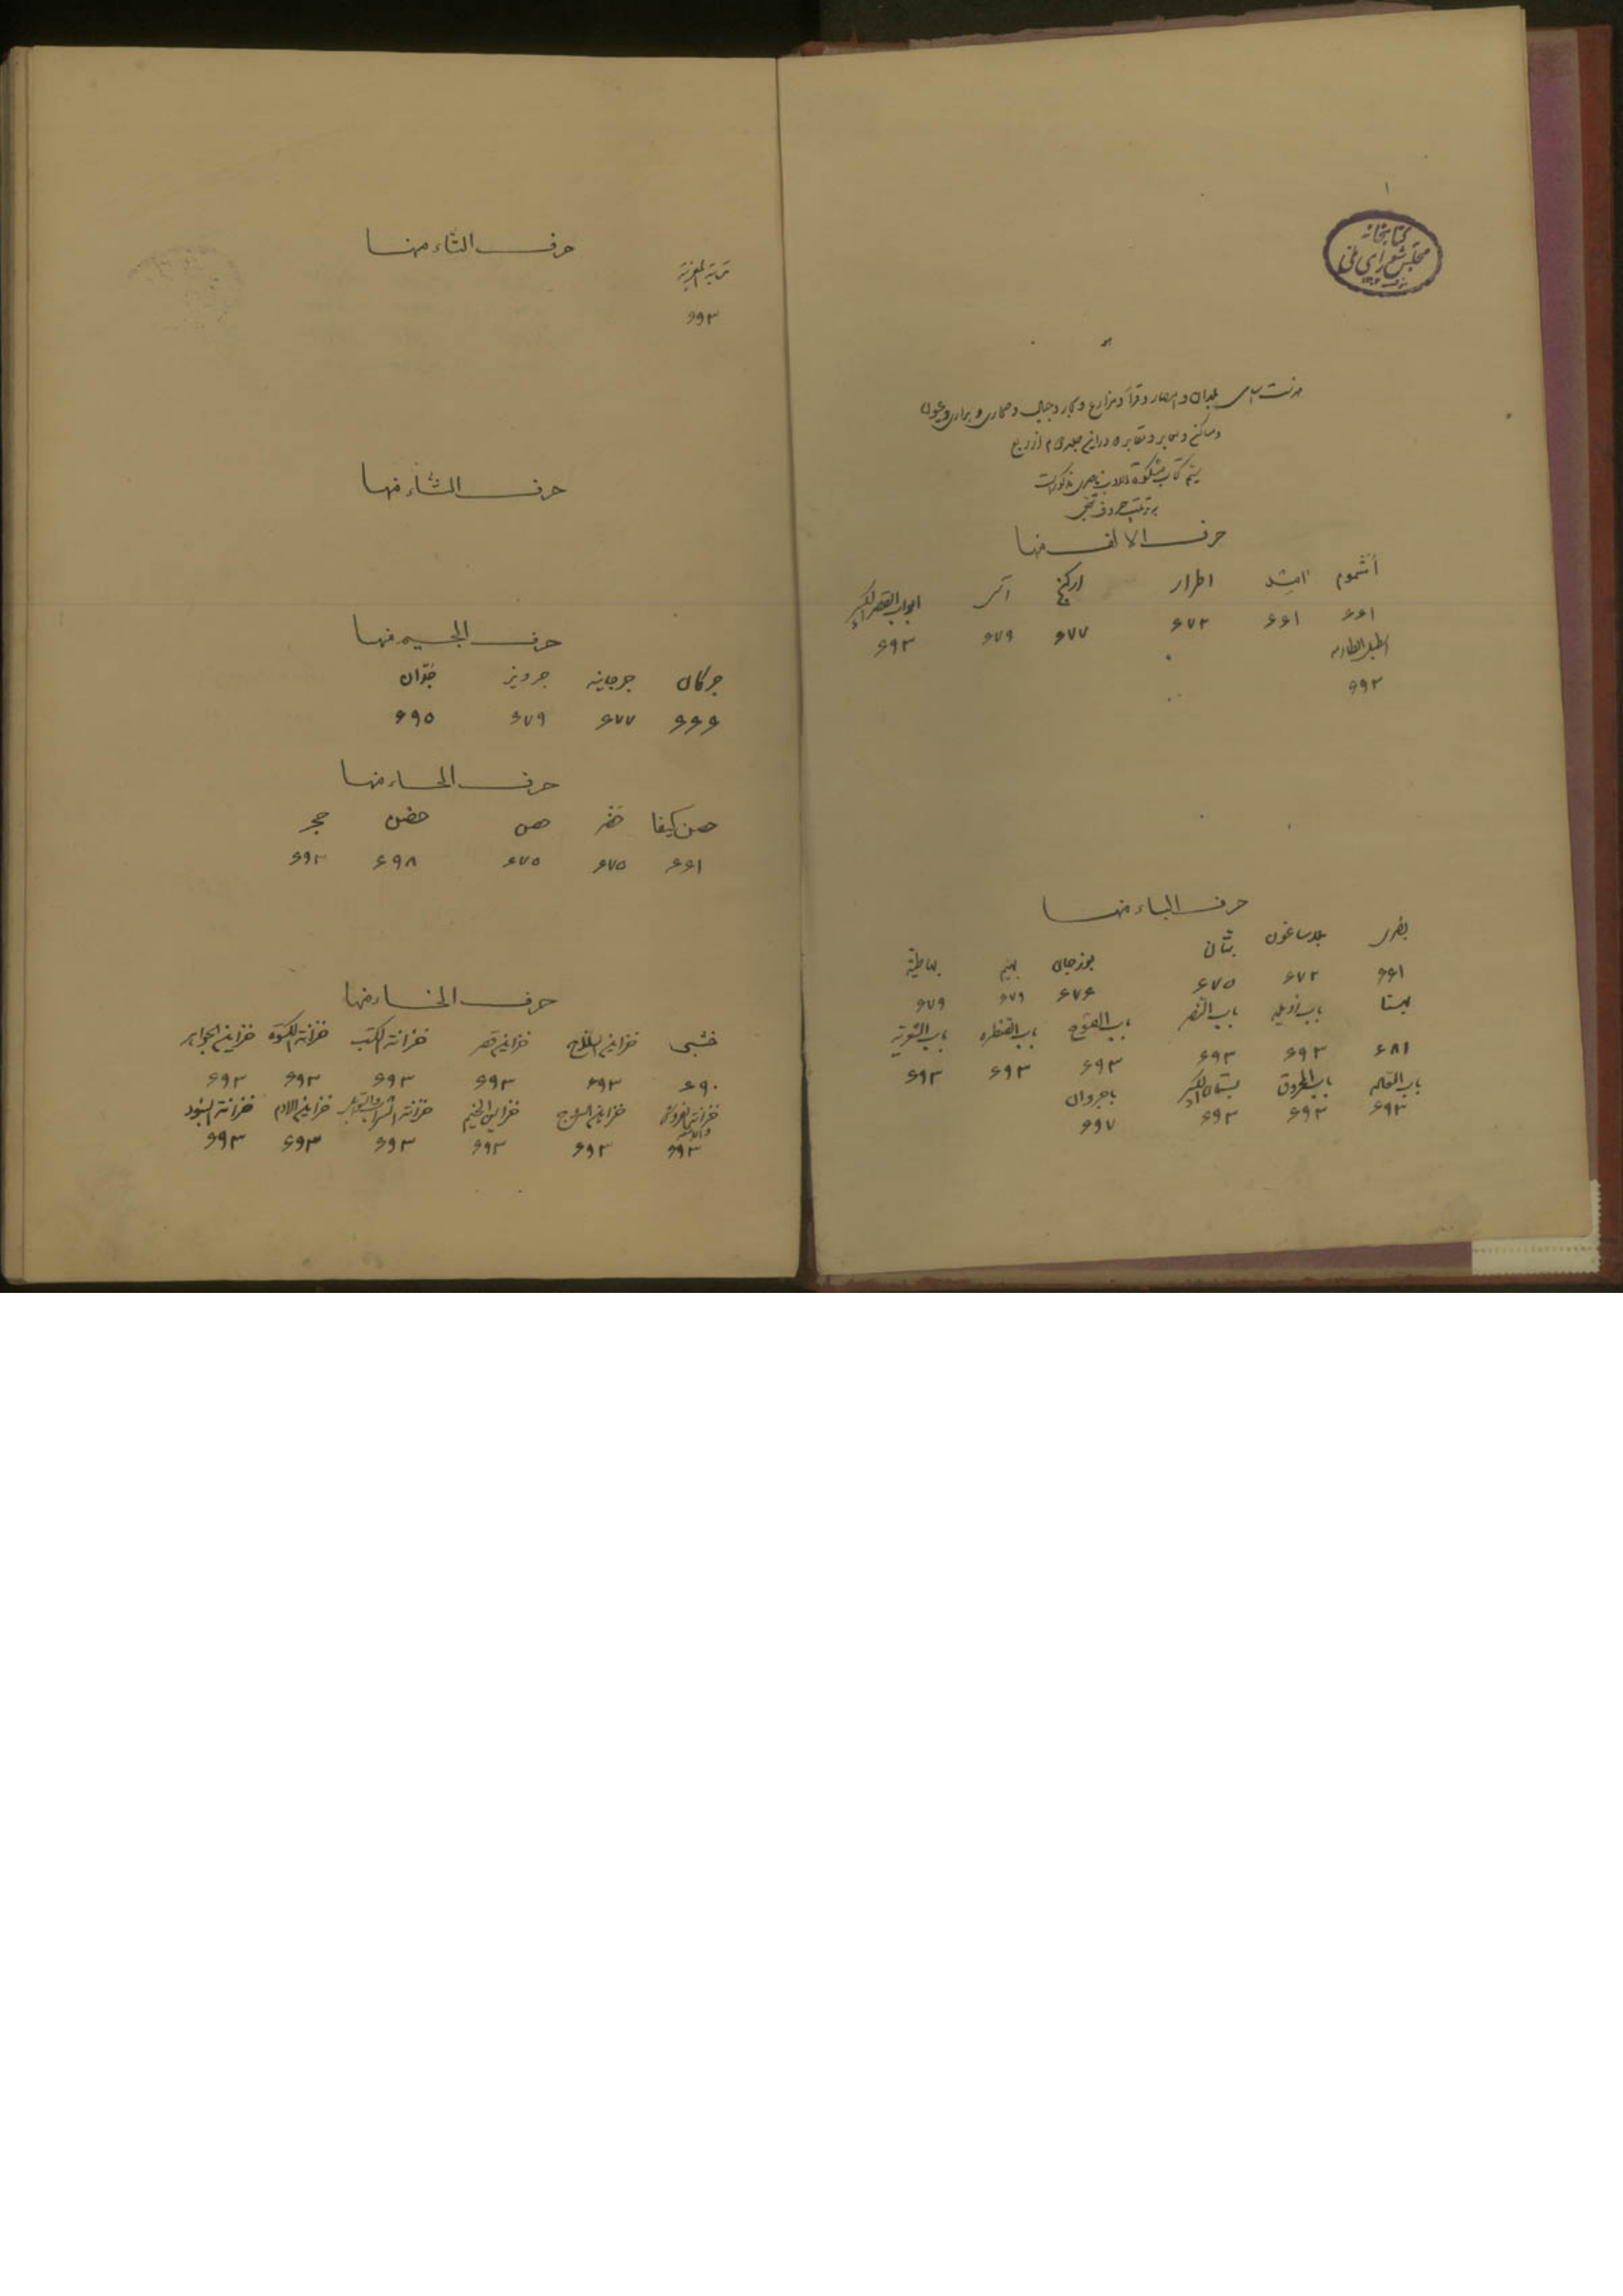 ۱
کتابخانه
مجلس شورای ملی
هو
فهرست اسامی بلدان و امصار و قرا و مزارع و بحار و جبال و صحاری و براری و عیون
و مساکن و معابر و مقابر که در این جلد دوم از ربع
یتیم کتاب مشکوة الادب ناصری مذکور است
بر ترتیب حروف تهجی
حرف الالف منها
اُشموم اطرار ارکنج ابواب القصر الکبیر
۶۶۱ ۶۶۱ ۶۷۲ ۶۷۷ ۶۷۹ ۶۹۳
اصطبل الطارمه
۶۹۳
حرف الباء منها
بصری بلاساغون بتان بوزجان بهاطیة
۶۶۱ ۶۷۲ ۶۷۵ ۶۷۶ ۶۷۹ ۶۷۹
بهسنا باب زویله باب النصر باب الفتوح باب القنطره باب الشعریة
۶۸۱ ۶۹۳ ۶۹۳ ۶۹۳ ۶۹۳ ۶۹۳
باب القلعه باب المحروق بستان الکبیر باجروان
۶۹۳ ۶۹۳ ۶۹۳ ۶۹۷
حرف التاء منها
۶۹۳
حرف الثاء منها
حرف الجیم منها
جرکان جرجانیه جردیز
۶۶۶ ۶۷۷ ۶۷۹ ۶۹۵
حرف الحاء منها
حصن کیفا حضر حصن حجر
۶۶۱ ۶۷۵ ۶۷۵ ۶۹۸ ۶۹۳
حرف الخاء منها
خشبی خزاین السلاح خزاین قصر خزانة الکتب خزانة الکسوة خزاین الجواهر
۶۹۰ ۶۹۳ ۶۹۳ ۶۹۳ ۶۹۳ ۶۹۳
خزاین السروج خزاین الخیم خزانة الشراب خزاین الادم خزانة البنود
۶۹۳ ۶۹۳ ۶۹۳ ۶۹۳ ۶۹۳ ۶۹۳